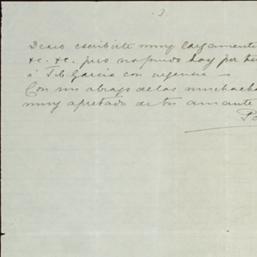 Deseo escribirte muy largamente
&c. &c. pero no puedo hoy por
á T. G. García con urgencia —
Con mis abrazos de las muchachas
muy apretado de tu amante